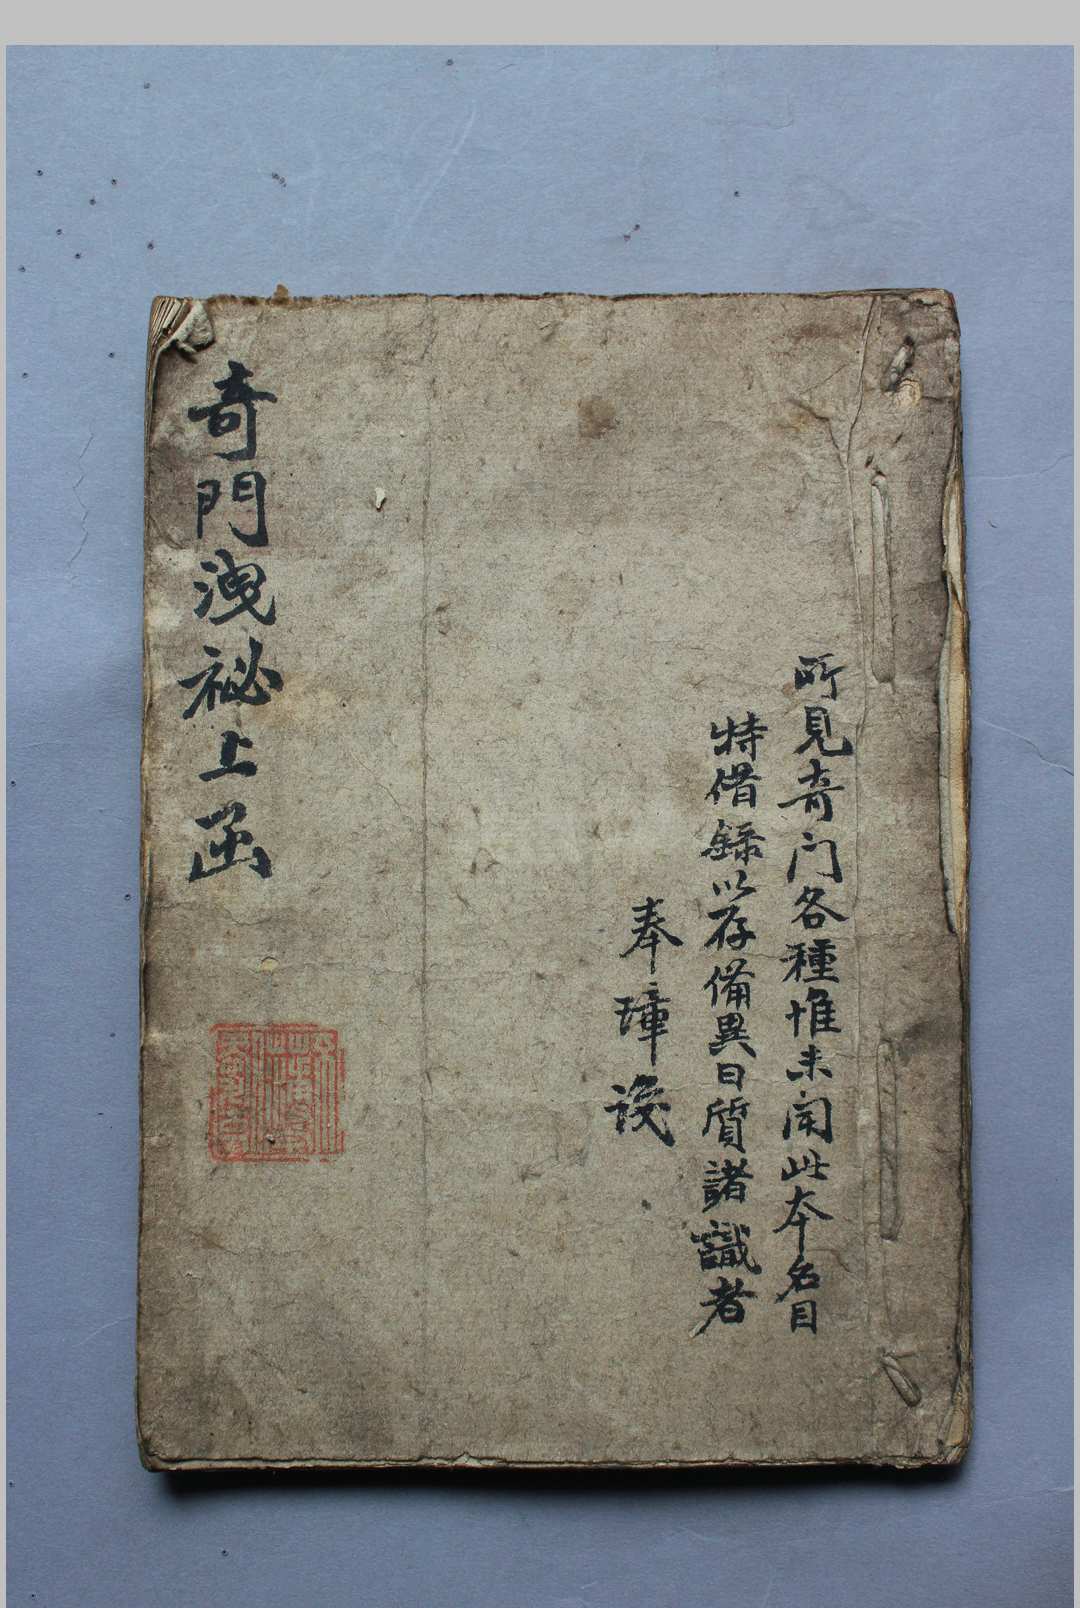 所見奇门各種惟未聞此本名目
特借録以存備異日質諸識者
奉璋識
奇門洩祕上函